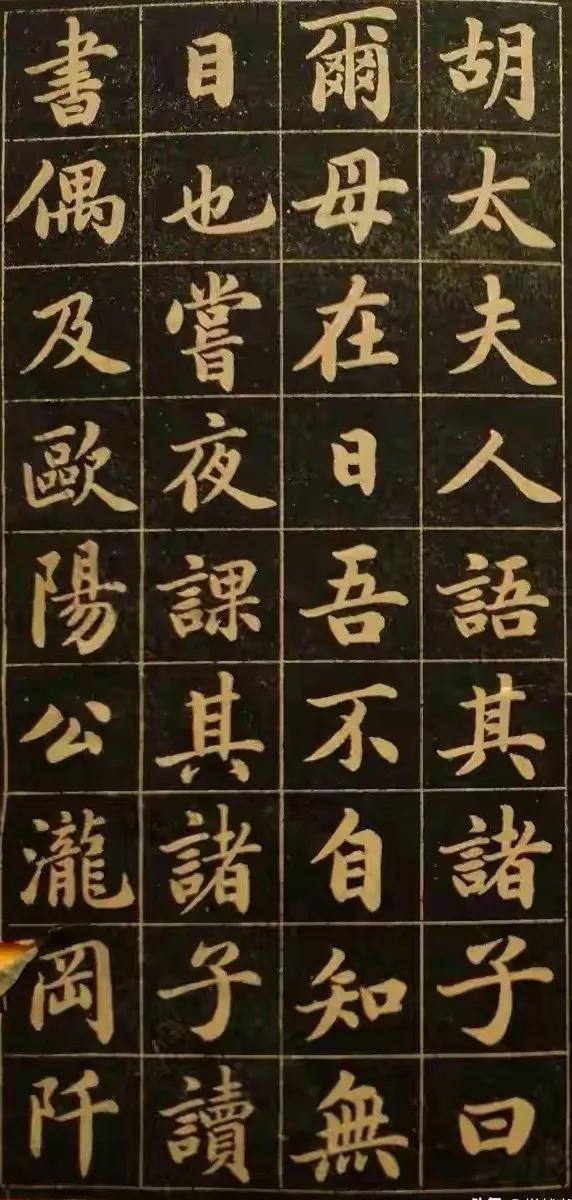 胡太夫人語其諸子曰
爾母在日吾不自知無
目也嘗夜課其諸子讀
書偶及歐陽公瀧岡阡